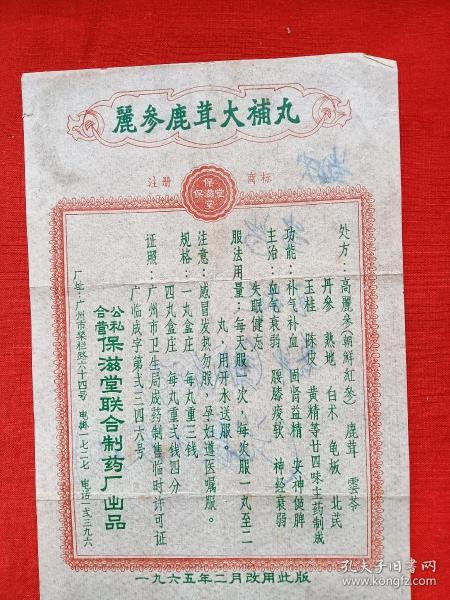 麗参鹿茸大補丸
注册 商标
保滋堂
保滋堂
处方：高麗参(朝鮮紅参) 鹿茸 雲苓
丹参 熟地 白术 龟板 北芪
玉桂 陈皮 黄精等廿四味主药制成
功能：补气补血 固肾益精 安神健脾
主治：血气衰弱 腰膝痠软 神经衰弱
失眠健忘
服法用量：每天服一次，每次服一丸至二
丸，用开水送服。
注意：感冒发热勿服，孕妇遵医嘱服。
规格：一丸盒庄 每丸重三钱
四丸盒庄 每丸重弍钱四分
证照：广州市卫生局成药制售临时许可证
广临成字第弍三四六号
公私合营保滋堂联合制药厂出品
厂址：广州市桨栏路六十四号 电掛一七二七 电话一弍三九六
一九六五年二月改用此版
孔夫子旧书网
www.kongfz.com